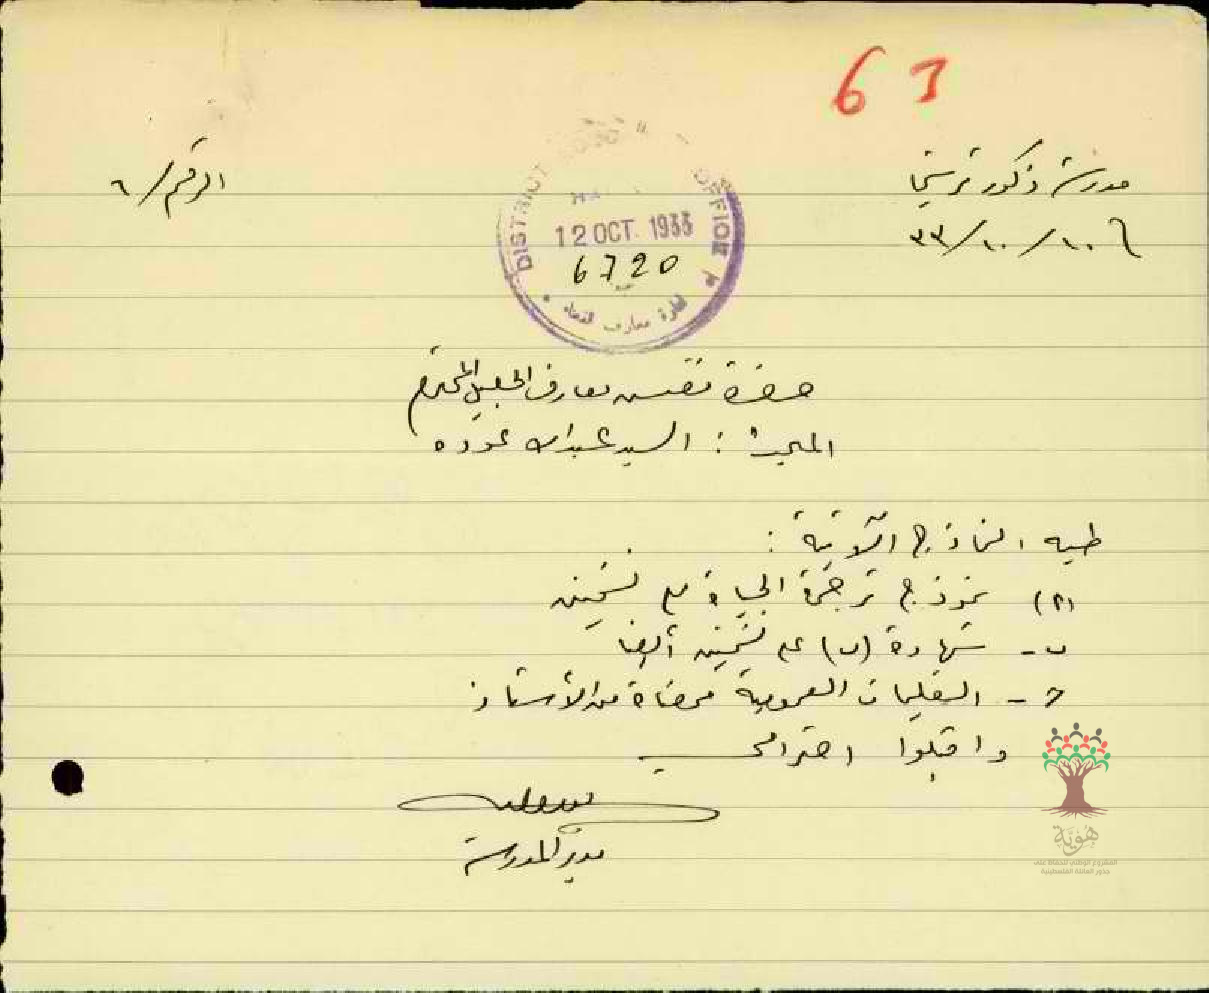 63
مدرسة ذكور ترشيحا
الرقم / ٦
١٠ / ١٠ / ٣٣
DISTRICT OFFICE
12 OCT. 1933
6720
ادارة معارف لواء
حضرة مفتش معارف الجليل المحترم
المبحث : السيد عبدالله عوده
طيه النماذج الآتية :
(١) نموذج ترجمة الحياة مع نسختين
ب - شهادة (ب) على نسختين أيضا
ج - التعليمات العمومية ممضاة من الأستاذ
واقبلوا احترامي
مدير المدرسة
هوية
المشروع الوطني للحفاظ على
جذور العائلة الفلسطينية